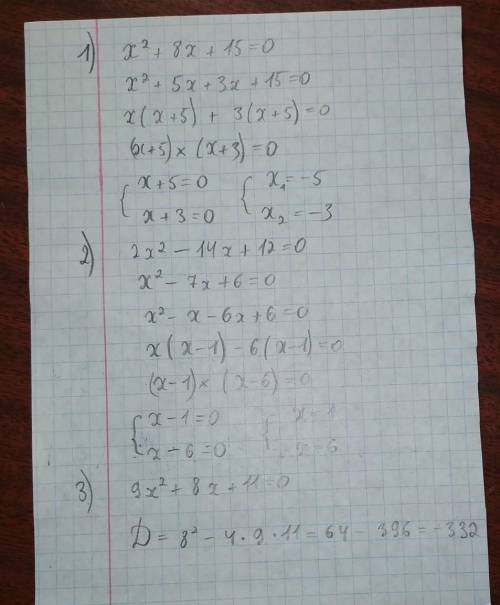 1) x² + 8x + 15 = 0
x² + 5x + 3x + 15 = 0
x(x+5) + 3(x+5) = 0
(x+5) × (x+3) = 0
{ x+5=0 { x₁ = -5
x+3=0 x₂ = -3
2) 2x² - 14x + 12 = 0
x² - 7x + 6 = 0
x² - x - 6x + 6 = 0
x(x-1) - 6(x-1) = 0
(x-1) × (x-6) = 0
{ x-1=0 { x=1
x-6=0 x=6
3) 9x² + 8x + 11 = 0
D = 8² - 4·9·11 = 64 - 396 = -332